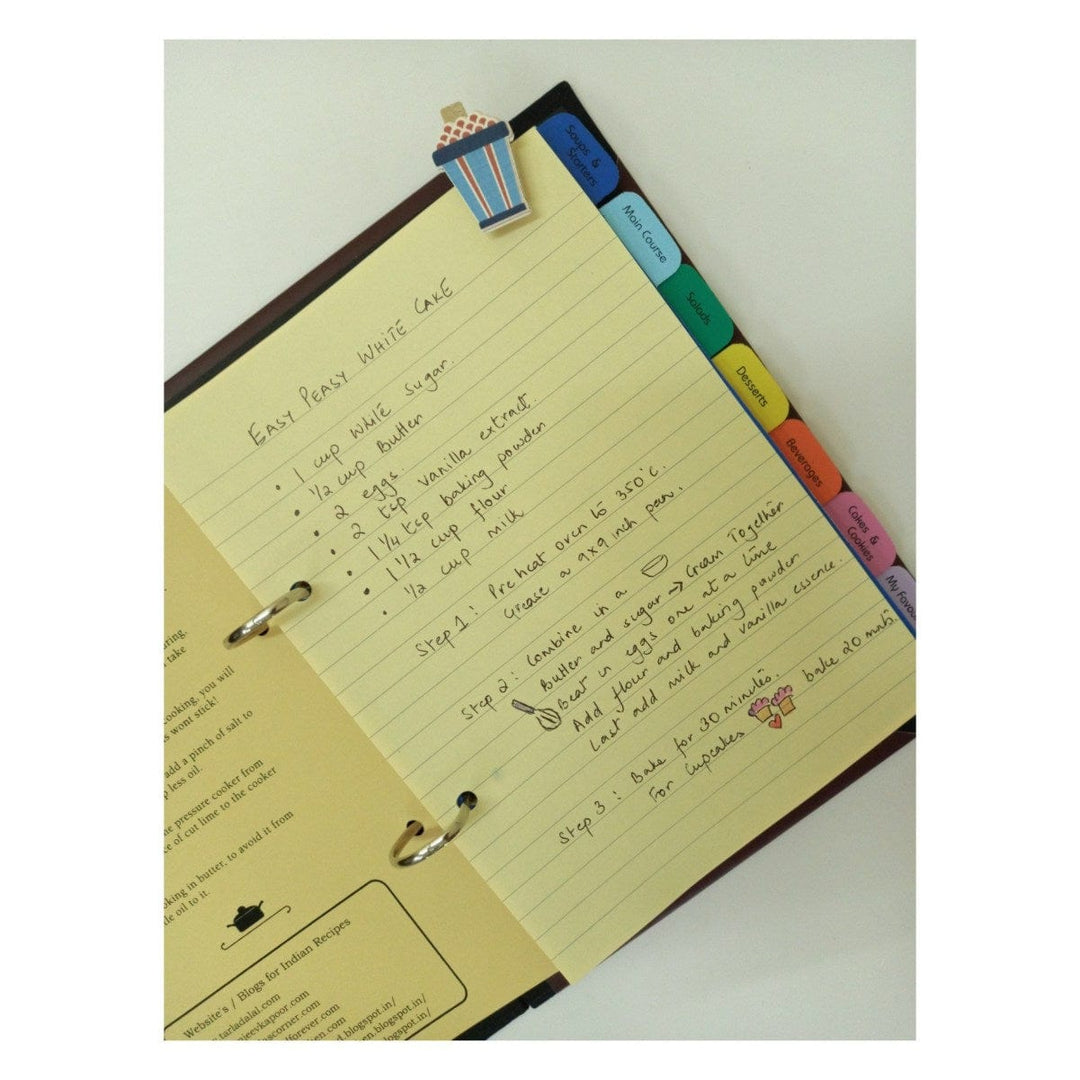 Soups &
Starters
Main Course
Salads
Desserts
Beverages
Cakes &
Cookies
My Favou
EASY PEASY WHITE CAKE
• 1 cup white sugar.
• 1/2 cup Butter
• 2 eggs.
• 2 tsp vanilla extract.
• 1 1/4 tsp baking powder
• 1 1/2 cup flour
• 1/2 cup milk
Step 1: Preheat oven to 350°C.
Grease a 9x9 inch pan.
Step 2: Combine in a
Butter and sugar → Cream Together
Beat in eggs one at a time
Add flour and baking powder
Last add milk and vanilla essence.
Step 3: Bake for 30 minutes.
For Cupcakes bake 20 mnts.
ring.
take
ooking, you will
s wont stick!
add a pinch of salt to
p less oil.
e pressure cooker from
ce of cut lime to the cooker
oking in butter, to avoid it from
tle oil to it.
Website's / Blogs for Indian Recipes
tarladalal.com
njeevkapoor.com
scorner.com
lforever.com
en.com
d.blogspot.in/
en.blogspot.in/
blogspot.in/